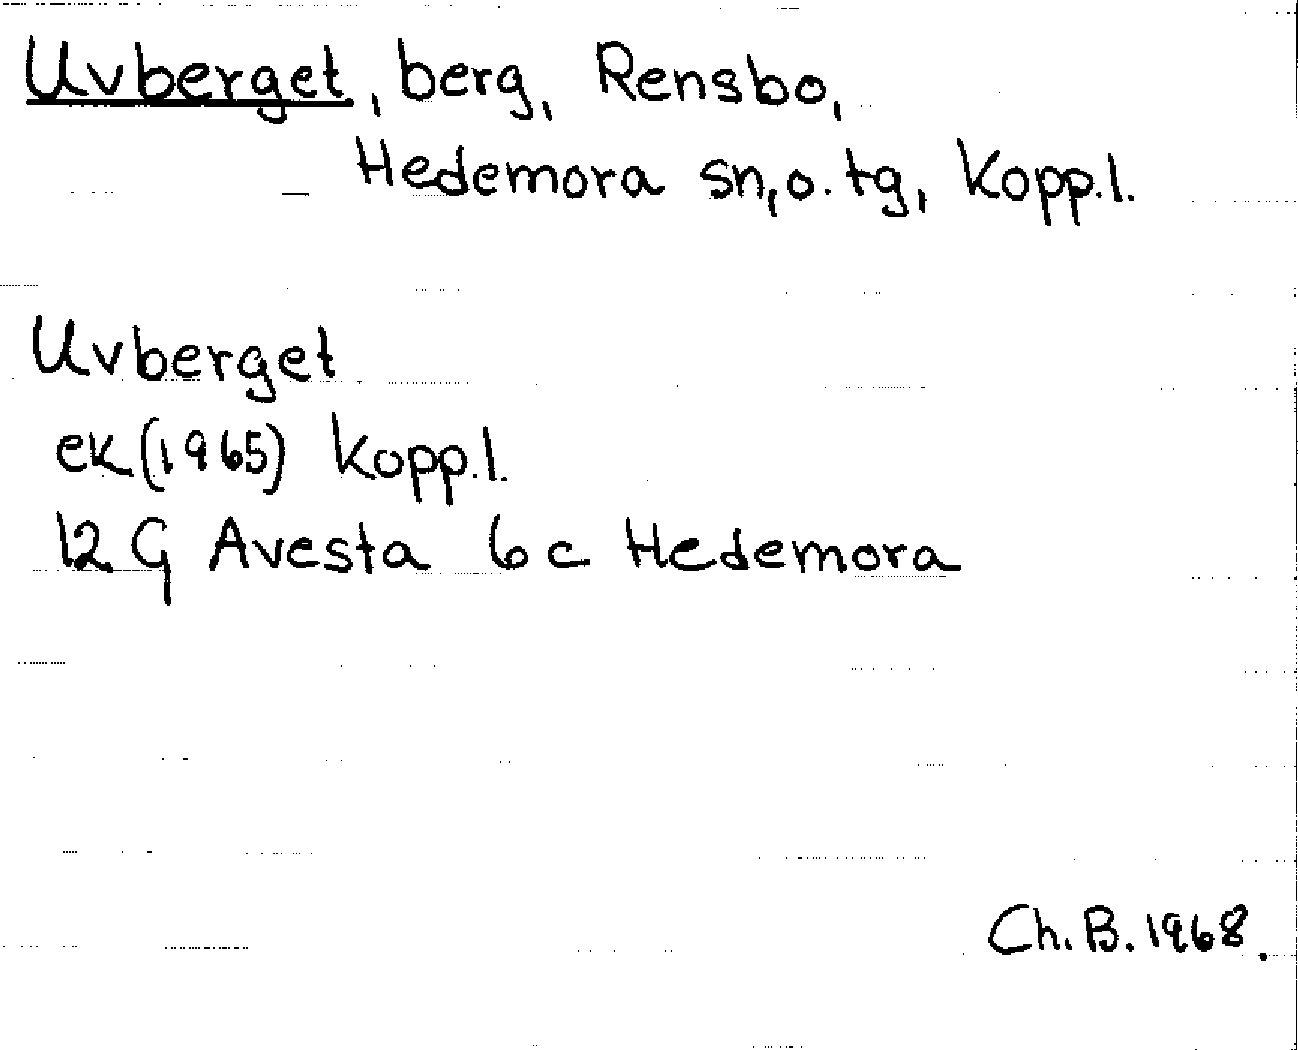 Uvberget, berg, Rensbo,
Hedemora sn, o. tg, Kopp.l.
Uvberget
ek (1965) Kopp.l.
12 G Avesta 6 c Hedemora
Ch. B. 1968.